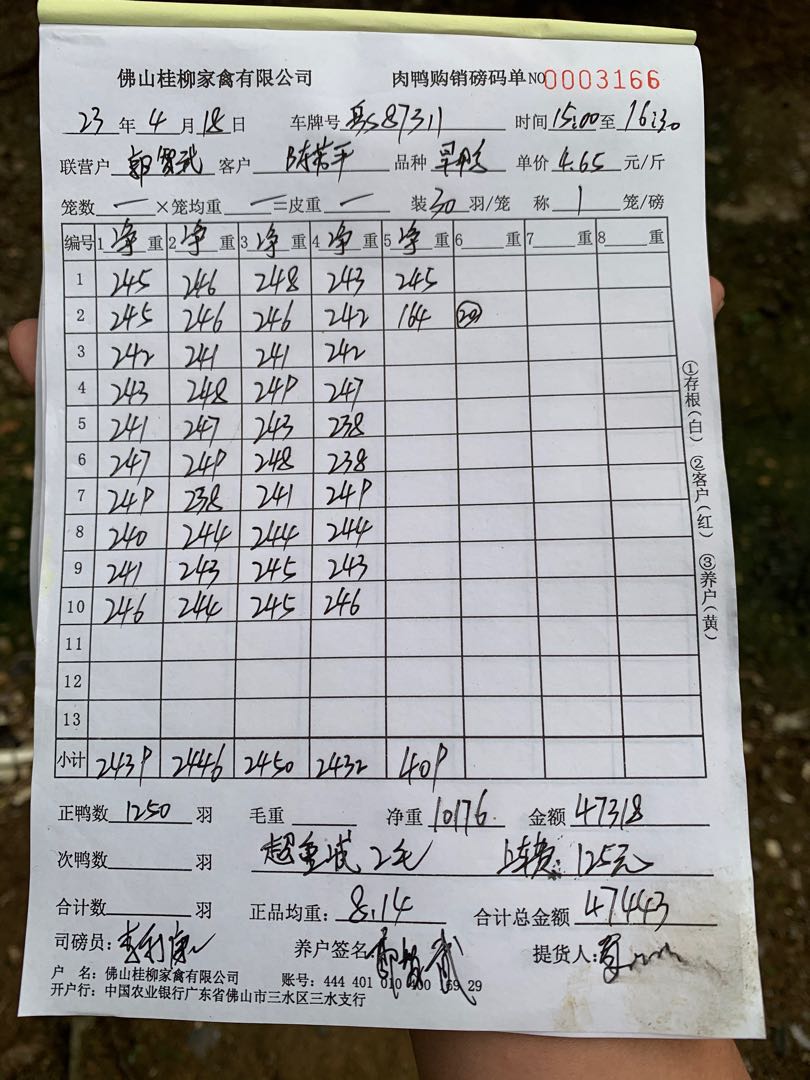 佛山桂柳家禽有限公司 肉鸭购销磅码单 NO 0003166
23 年 4 月 18 日 车牌号 粤S87311 时间 15:00 至 16:30
联营户 郭智武 客户 陈芳平 品种 单价 4.65 元/斤
笼数 一 ×笼均重 一 =皮重 一 装 30 羽/笼 称 1 笼/磅
编号 1 净 重 2 净 重 3 净 重 4 净 重 5 净 重 6 重 7 重 8 重
1 245 246 248 243 245
2 245 246 246 242 164 20
3 242 241 241 242
4 243 248 249 247
5 241 247 243 238
6 247 249 248 238
7 249 238 241 249
8 240 244 244 244
9 241 243 245 243
10 246 244 245 246
11
12
13
小计 2439 2446 2450 2432 409
①存根(白) ②客户(红) ③养户(黄)
正鸭数 1250 羽 毛重 净重 10176 金额 47318
次鸭数 羽 超重减2毛 上车费:125元
合计数 羽 正品均重: 8.14 合计总金额 47443
司磅员: 养户签名 郭智武 提货人:
户 名: 佛山桂柳家禽有限公司 账号: 444 401 010 400 169 29
开户行: 中国农业银行广东省佛山市三水区三水支行